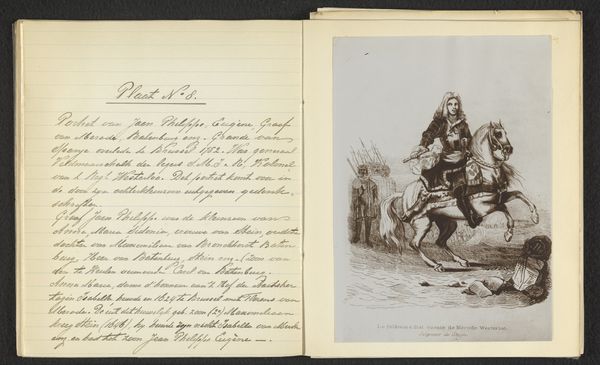 Plaat No 8.
Portret van Jean Philippe, Eugène, Graaf
van Merode, Batenburg enz. Grande van
Spanje overleden te Brussel 1732. Was generaal
Veldmaarschalk der legers
v. h. Regt Westerloo. Dit portret komt voor in
de door zijn achterkleinzoon uitgegeven gedenk-
schriften.
Graaf Jean Philippe was de kleinzoon van
Anna Maria Sidonia, vrouwe van Stein, oudste
dochter van Maximiliaan van Bronckhorst Baten
burg, Heer van Batenburg, Stein enz. (zoon van
den te Carel van Batenburg.
Anna Maria, dame d'honneur aan 't Hof der
Isabella huwde in 1629 te Brussel met Florens van
Merode. Uit dit huwelijk geb. zoon (2e) Maximiliaan
Stein (1696), hij huwde zijn nicht Isabella van Merode
en had tot zoon Jean Philippe Eugène —.
Le Feldmaréchal comte de Mérode Westerloo.
Seigneur de Stein.